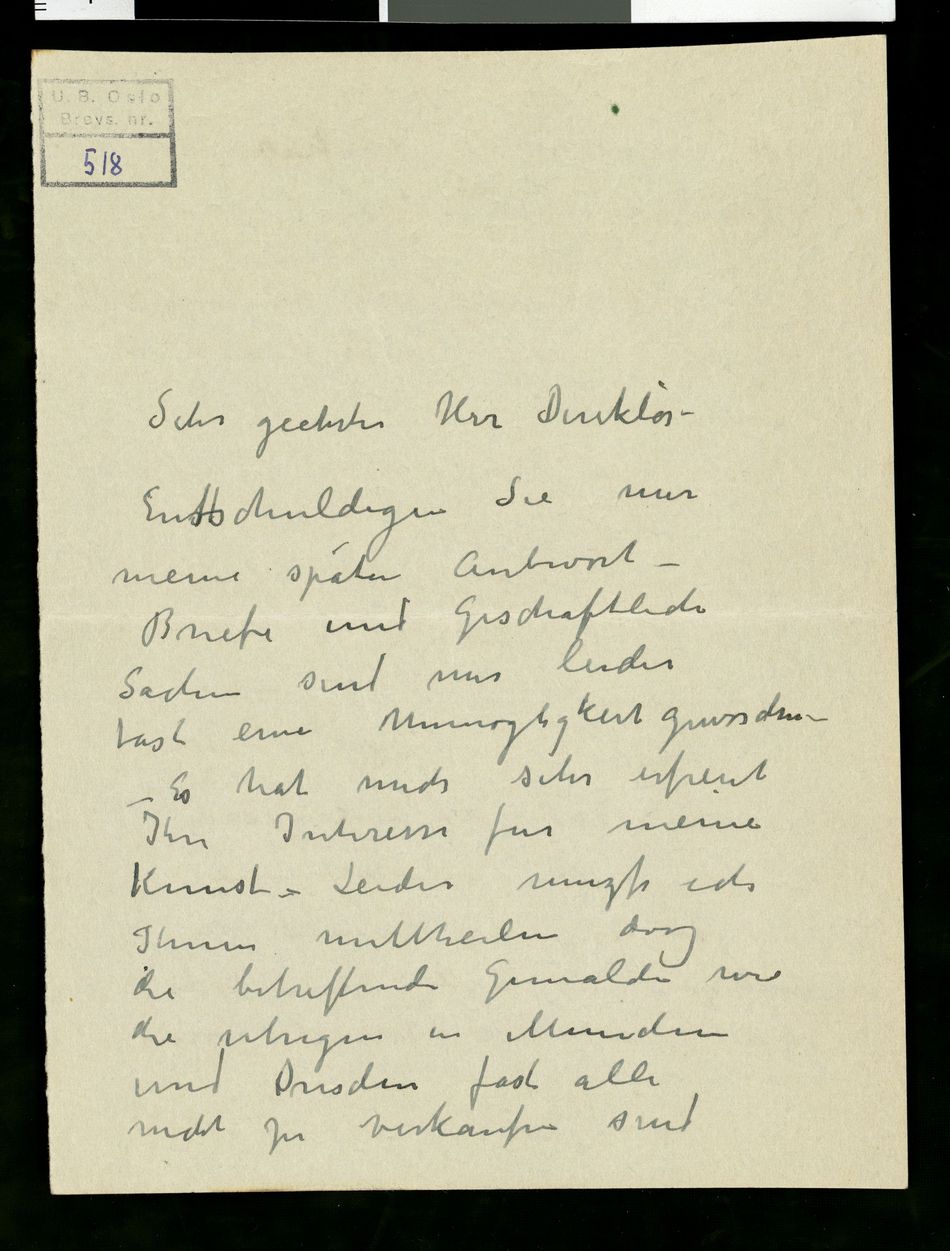 U. B. Oslo
Brevs. nr.
518
Sehr geehrter Herr Direktör –
Enttschuldigen Sie mir
meine späten Antwort –
Briefe und Geschäftliche
Sachen sind mir leider
fast eine Unmögligkeit geworden –
– Es hat mich sehr erfreut
Ihr Interesse fur meine
Kunst – Leider muszs ich
Ihnen mittheilen dasz
die betreffende Gemälde wie
die ubrigen in Munchen
und Dresden fast alle
nicht zu verkaufen sind